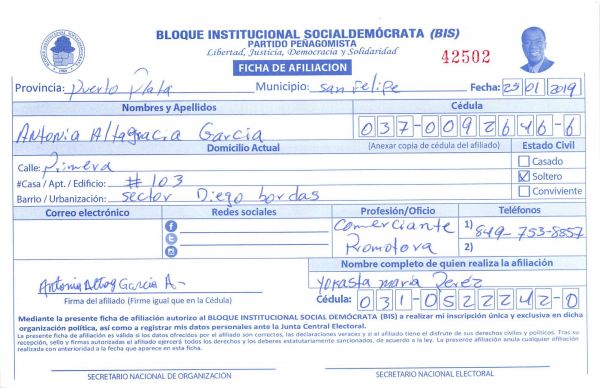 BLOQUE INSTITUCIONAL SOCIALDEMÓCRATA (BIS)
PARTIDO PEÑAGOMISTA
Libertad, Justicia, Democracia y Solidaridad
FICHA DE AFILIACION
42502
Provincia: Puerto Plata Municipio: san Felipe Fecha: 25 01 2019
Nombres y Apellidos Cédula
Antonia Altagracia Garcia 037-0092646-6
Domicilio Actual (Anexar copia de cédula del afiliado) Estado Civil
Calle: Primera Casado
#Casa / Apt. / Edificio: # 103 Soltero
Barrio / Urbanización: sector Diego bordas Conviviente
Correo electrónico Redes sociales Profesión/Oficio Teléfonos
Comerciante 1) 849-753-8857
Promotora 2)
Nombre completo de quien realiza la afiliación
Antonia Altag Garcia A- Yokasta maria Perez
Firma del afiliado (Firme igual que en la Cédula) Cédula: 031-0522242-0
Mediante la presente ficha de afiliación autorizo al BLOQUE INSTITUCIONAL SOCIAL DEMÓCRATA (BIS) a realizar mi inscripción única y exclusiva en dicha
organización política, así como a registrar mis datos personales ante la Junta Central Electoral.
La presente ficha de afiliación es valida si los datos ofrecidos por el afiliado son correctos, las declaraciones veraces y si el afiliado tiene el disfrute de sus derechos civiles y políticos. Tras su
recepción, sello y firmas autorizadas el afiliado ejercerá todos los derechos y los deberes estatutariamente sancionados, de acuerdo a la ley. La presente afiliación anula cualquier afiliación
realizada con anterioridad a la fecha que aparece en esta ficha.
SECRETARIO NACIONAL DE ORGANIZACIÓN SECRETARIO NACIONAL ELECTORAL